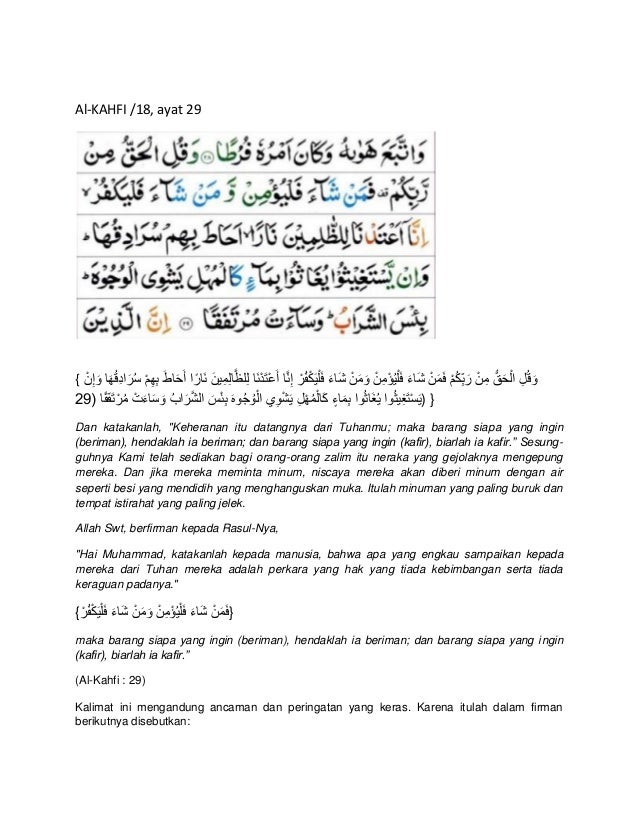 Al-KAHFI /18, ayat 29
وَاتَّبَعَ هَوٰىهُ وَكَانَ اَمْرُهٗ فُرُطًا ۝٢٨ وَقُلِ الْحَقُّ مِنْ
رَّبِّكُمْ ۗ فَمَنْ شَآءَ فَلْيُؤْمِنْ وَّ مَنْ شَآءَ فَلْيَكْفُرْ ۙ
اِنَّآ اَعْتَدْنَا لِلظّٰلِمِيْنَ نَارًا ۙ اَحَاطَ بِهِمْ سُرَادِقُهَا ۗ
وَاِنْ يَّسْتَغِيْثُوْا يُغَاثُوْا بِمَآءٍ كَالْمُهْلِ يَشْوِى الْوُجُوْهَ ۗ
بِئْسَ الشَّرَابُ ۗ وَسَآءَتْ مُرْتَفَقًا ۝٢٩ اِنَّ الَّذِيْنَ
{ وَقُلِ الْحَقُّ مِنْ رَبِّكُمْ فَمَنْ شَاءَ فَلْيُؤْمِنْ وَمَنْ شَاءَ فَلْيَكْفُرْ إِنَّا أَعْتَدْنَا لِلظَّالِمِينَ نَارًا أَحَاطَ بِهِمْ سُرَادِقُهَا وَإِنْ
يَسْتَغِيثُوا يُغَاثُوا بِمَاءٍ كَالْمُهْلِ يَشْوِي الْوُجُوهَ بِئْسَ الشَّرَابُ وَسَاءَتْ مُرْتَفَقًا (29) }
Dan katakanlah, "Keheranan itu datangnya dari Tuhanmu; maka barang siapa yang ingin
(beriman), hendaklah ia beriman; dan barang siapa yang ingin (kafir), biarlah ia kafir.” Sesung-
guhnya Kami telah sediakan bagi orang-orang zalim itu neraka yang gejolaknya mengepung
mereka. Dan jika mereka meminta minum, niscaya mereka akan diberi minum dengan air
seperti besi yang mendidih yang menghanguskan muka. Itulah minuman yang paling buruk dan
tempat istirahat yang paling jelek.
Allah Swt, berfirman kepada Rasul-Nya,
"Hai Muhammad, katakanlah kepada manusia, bahwa apa yang engkau sampaikan kepada
mereka dari Tuhan mereka adalah perkara yang hak yang tiada kebimbangan serta tiada
keraguan padanya."
{فَمَنْ شَاءَ فَلْيُؤْمِنْ وَمَنْ شَاءَ فَلْيَكْفُرْ}
maka barang siapa yang ingin (beriman), hendaklah ia beriman; dan barang siapa yang ingin
(kafir), biarlah ia kafir.”
(Al-Kahfi : 29)
Kalimat ini mengandung ancaman dan peringatan yang keras. Karena itulah dalam firman
berikutnya disebutkan: